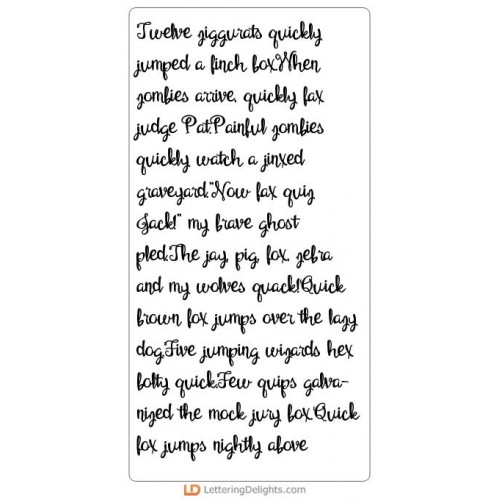 Twelve ziggurats quickly
jumped a finch box.When
zombies arrive, quickly fax
judge Pat.Painful zombies
quickly watch a jinxed
graveyard."Now fax quiz
Jack!" my brave ghost
pled.The jay, pig, fox, zebra
and my wolves quack!Quick
brown fox jumps over the lazy
dog.Five jumping wizards hex
bolty quick.Few quips galva-
nized the mock jury box.Quick
fox jumps nightly above
LD LetteringDelights.com